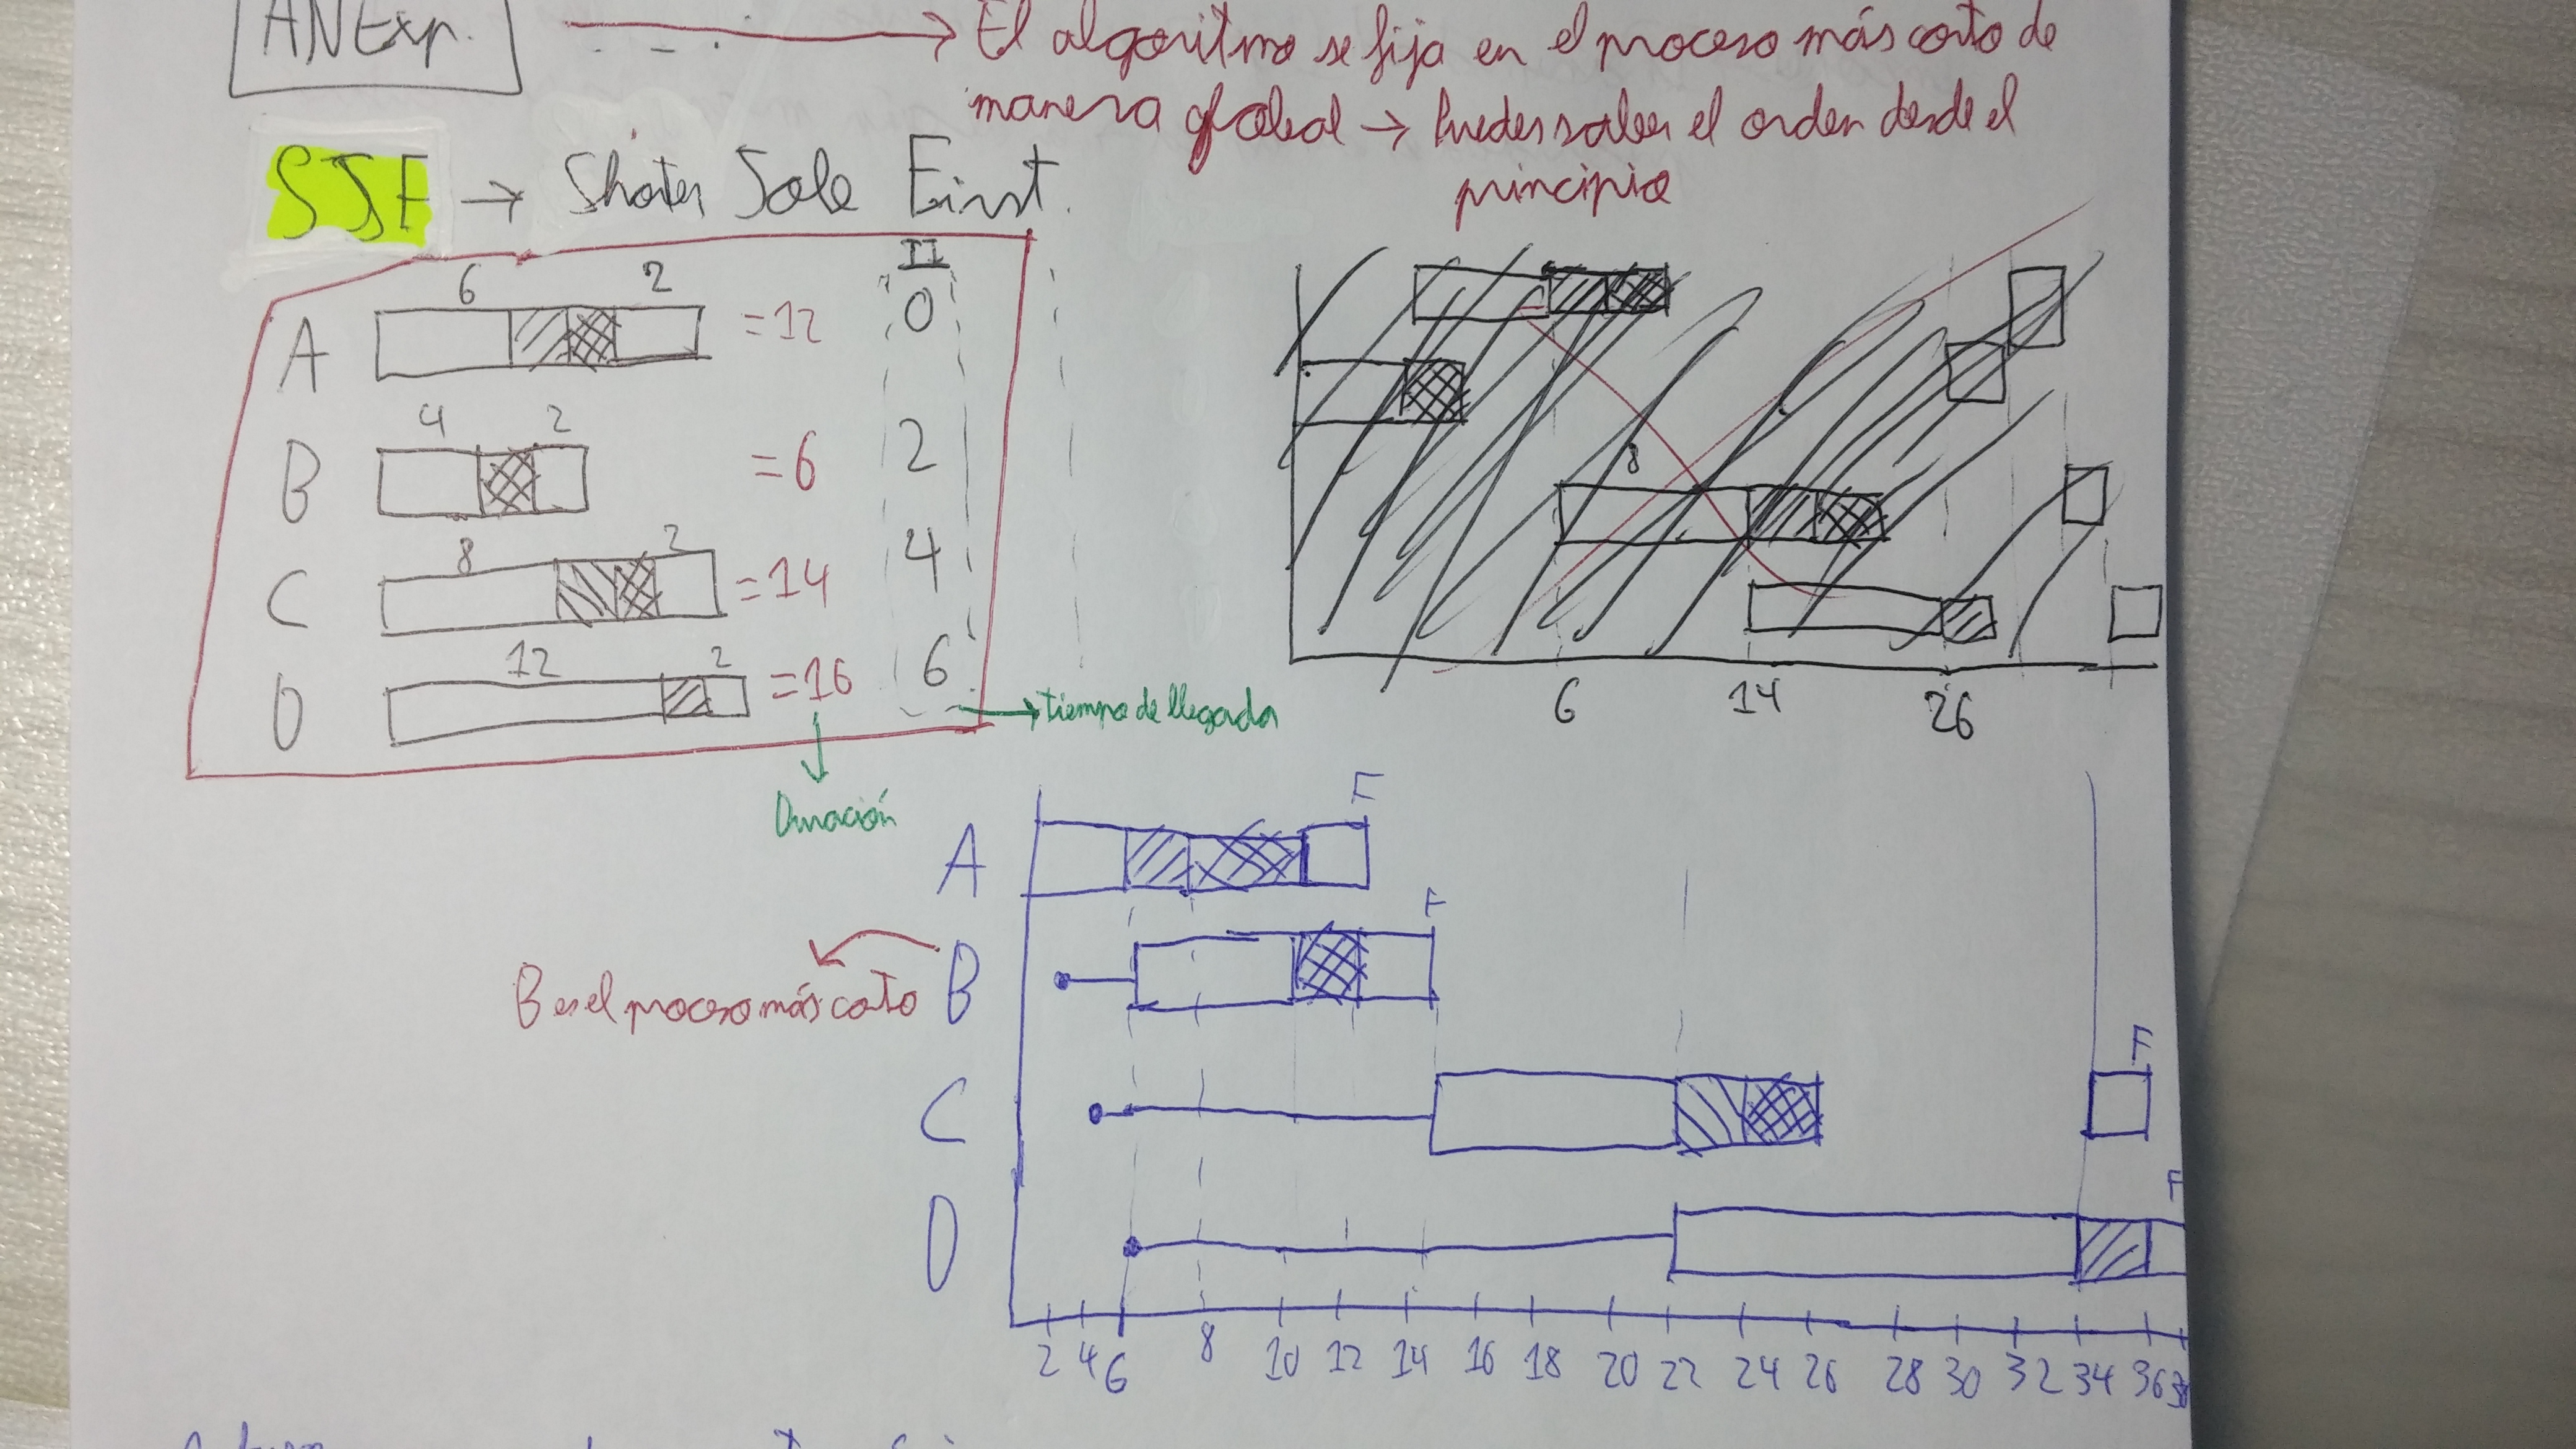 ANExp.
El algoritmo se fija en el proceso más corto de
manera global → Puedes saber el orden desde el
principio
SJF → Shorter Job First.
II
A 6 2 =12 0
B 4 2 =6 2
C 8 2 =14 4
D 12 2 =16 6
→ tiempo de llegada
Duración
8
6 14 26
A F
B es el proceso más corto B F
C F
D F
2 4 6 8 10 12 14 16 18 20 22 24 26 28 30 32 34 36 38